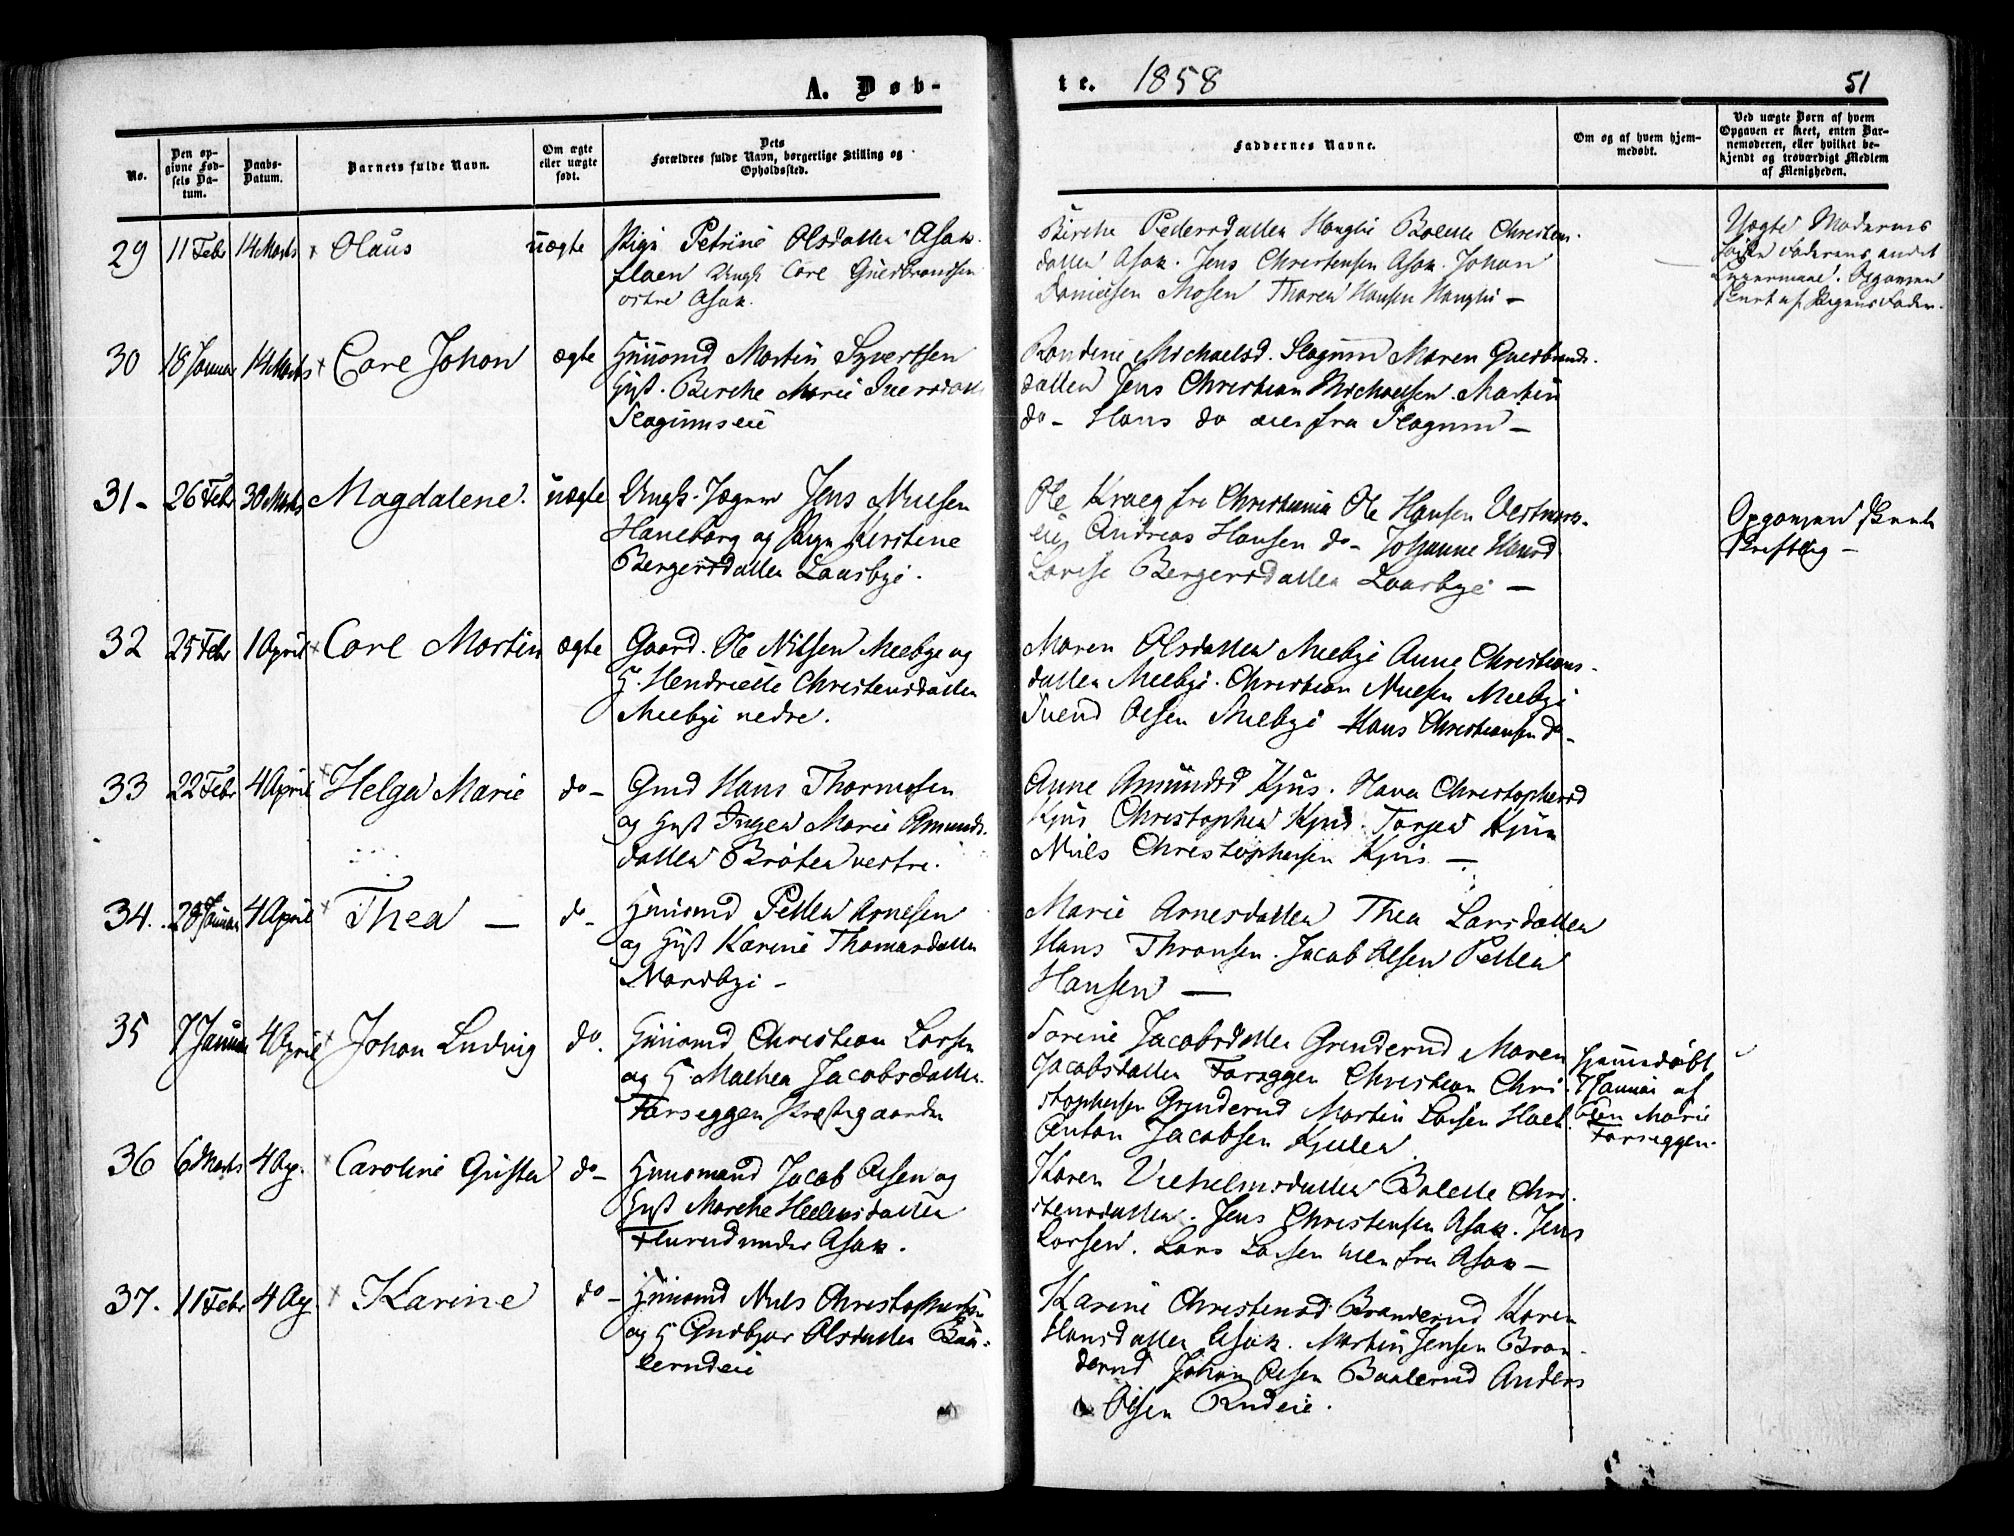 A. Døb-
te. 1858
51
No.
Den op-
givne Fød-
sels Da-
tum.
Daabs-
Datum.
Barnets fulde Navn.
Om ægte
eller uægte
født.
Dets
Forældres fulde Navn, borgerlige Stilling og
Opholdssted.
Faddernes Navne.
Om og af hvem hjem-
medøbt.
Ved uægte Børn af hvem
Opgaven er skeet, enten Bar-
nemoderen, eller hvilket be-
kjendt og troværdigt Medlem
af Menigheden.
29 11 Febr 14 Marts Olaus uægte Pige Petrine Olsdatter Asak-
flaen Ungk Carl Gudbrandsen
østre Asak.
Birthe Pedersdatter Haugli Bolette Christens-
datter Asak. Jens Christensen Asak. Johan
Danielsen Mosen Thoren Hansen Haugli —
Uægte Moderens
første Faderens andet
Leiermaal. Opgaven
skeet af Pigens Fader.
30 18 Januar 14 Marts Carl Johan ægte Huusmd Martin Syvertsen
Hust. Birthe Marie Iversdatt
Slagumseie
Randine Michaelsd. Slagum Maren Gudbrands-
datter Jens Christian Michaelsen Martin
do - Hans do alle fra Slagum —
31 - 26 Febr 30 Marts Magdalene. uægte Ungk. Jæger Jens Nielsen
Haneborg og Pige Kirstine
Bergersdatter Laasbye.
Ole Kraeg fra Christiania Ole Hansen
eie Andreas Hansen do - Johanne
Lovise Bergersdatter Laasbye —
Opgaven skeet
skriftlig —
32 25 Febr 1 April Carl Martin ægte Gaard. Ole Nilsen Meebye og
H. Hendriette Christensdatter
Meebye nedre.
Maren Olsdatter Meebye Anne Christians-
datter Meebye. Christian Nielsen Meebye
Svend Olsen Meebye Hans Christiansen do -
33 22 Febr 4 April Helga Marie do - Gmd Hans Thormosen
og Hust Ingen Marie Amunds-
datter Brøten vestre.
Anne Amundsd Kjus. Maren Christophersd
Kjus Christopher Kjus. Torger Kjus
Niels Christophersen Kjus —
34. 28 Januar 4 April Thea — do - Huusmd Petter Arnesen
og Hust Karine Thomasdatter
Nordbye -
Marie Arnesdatter Thea Larsdatter
Hans Thronsen. Jacob Olsen Petter
Hansen —
35 7 Januar 4 April Johan Ludvig do. Huusmd Christian Larsen
og H Mathea Jacobsdatter
Farseggen Præstegaarden
Torine Jacobsdatter Grinderud Maren
Jacobsdatter Farseggen Christian Chri-
stophersen Grinderud Martin Larsen
Anton Jacobsen Kjelle
Hjemmedøbt
7 Januar af
Elen Marie
Farseggen.
36 6 Marts 4 Ap. Caroline Gusta do - Huusmand Jacob Olsen og
Hust Marthe Heelensdatter
Flurud under Asak.
Karen Vilhelmsdatter Bolette Chri-
stensdatter. Jens Christensen Asak. Jens
Larsen. Lars Larsen alle fra Asak —
37. 11 Febr 4 Ap. Karine do - Huusmd Niels Christophersen
og H Gudbjør Olsdatter Baa-
lerudeie
Karine Christensd Branderud Karen
Hansdatter Asak. Martin Jensen Bran-
derud Johan Olsen Baalerud Anders
Olsen Rudeie.